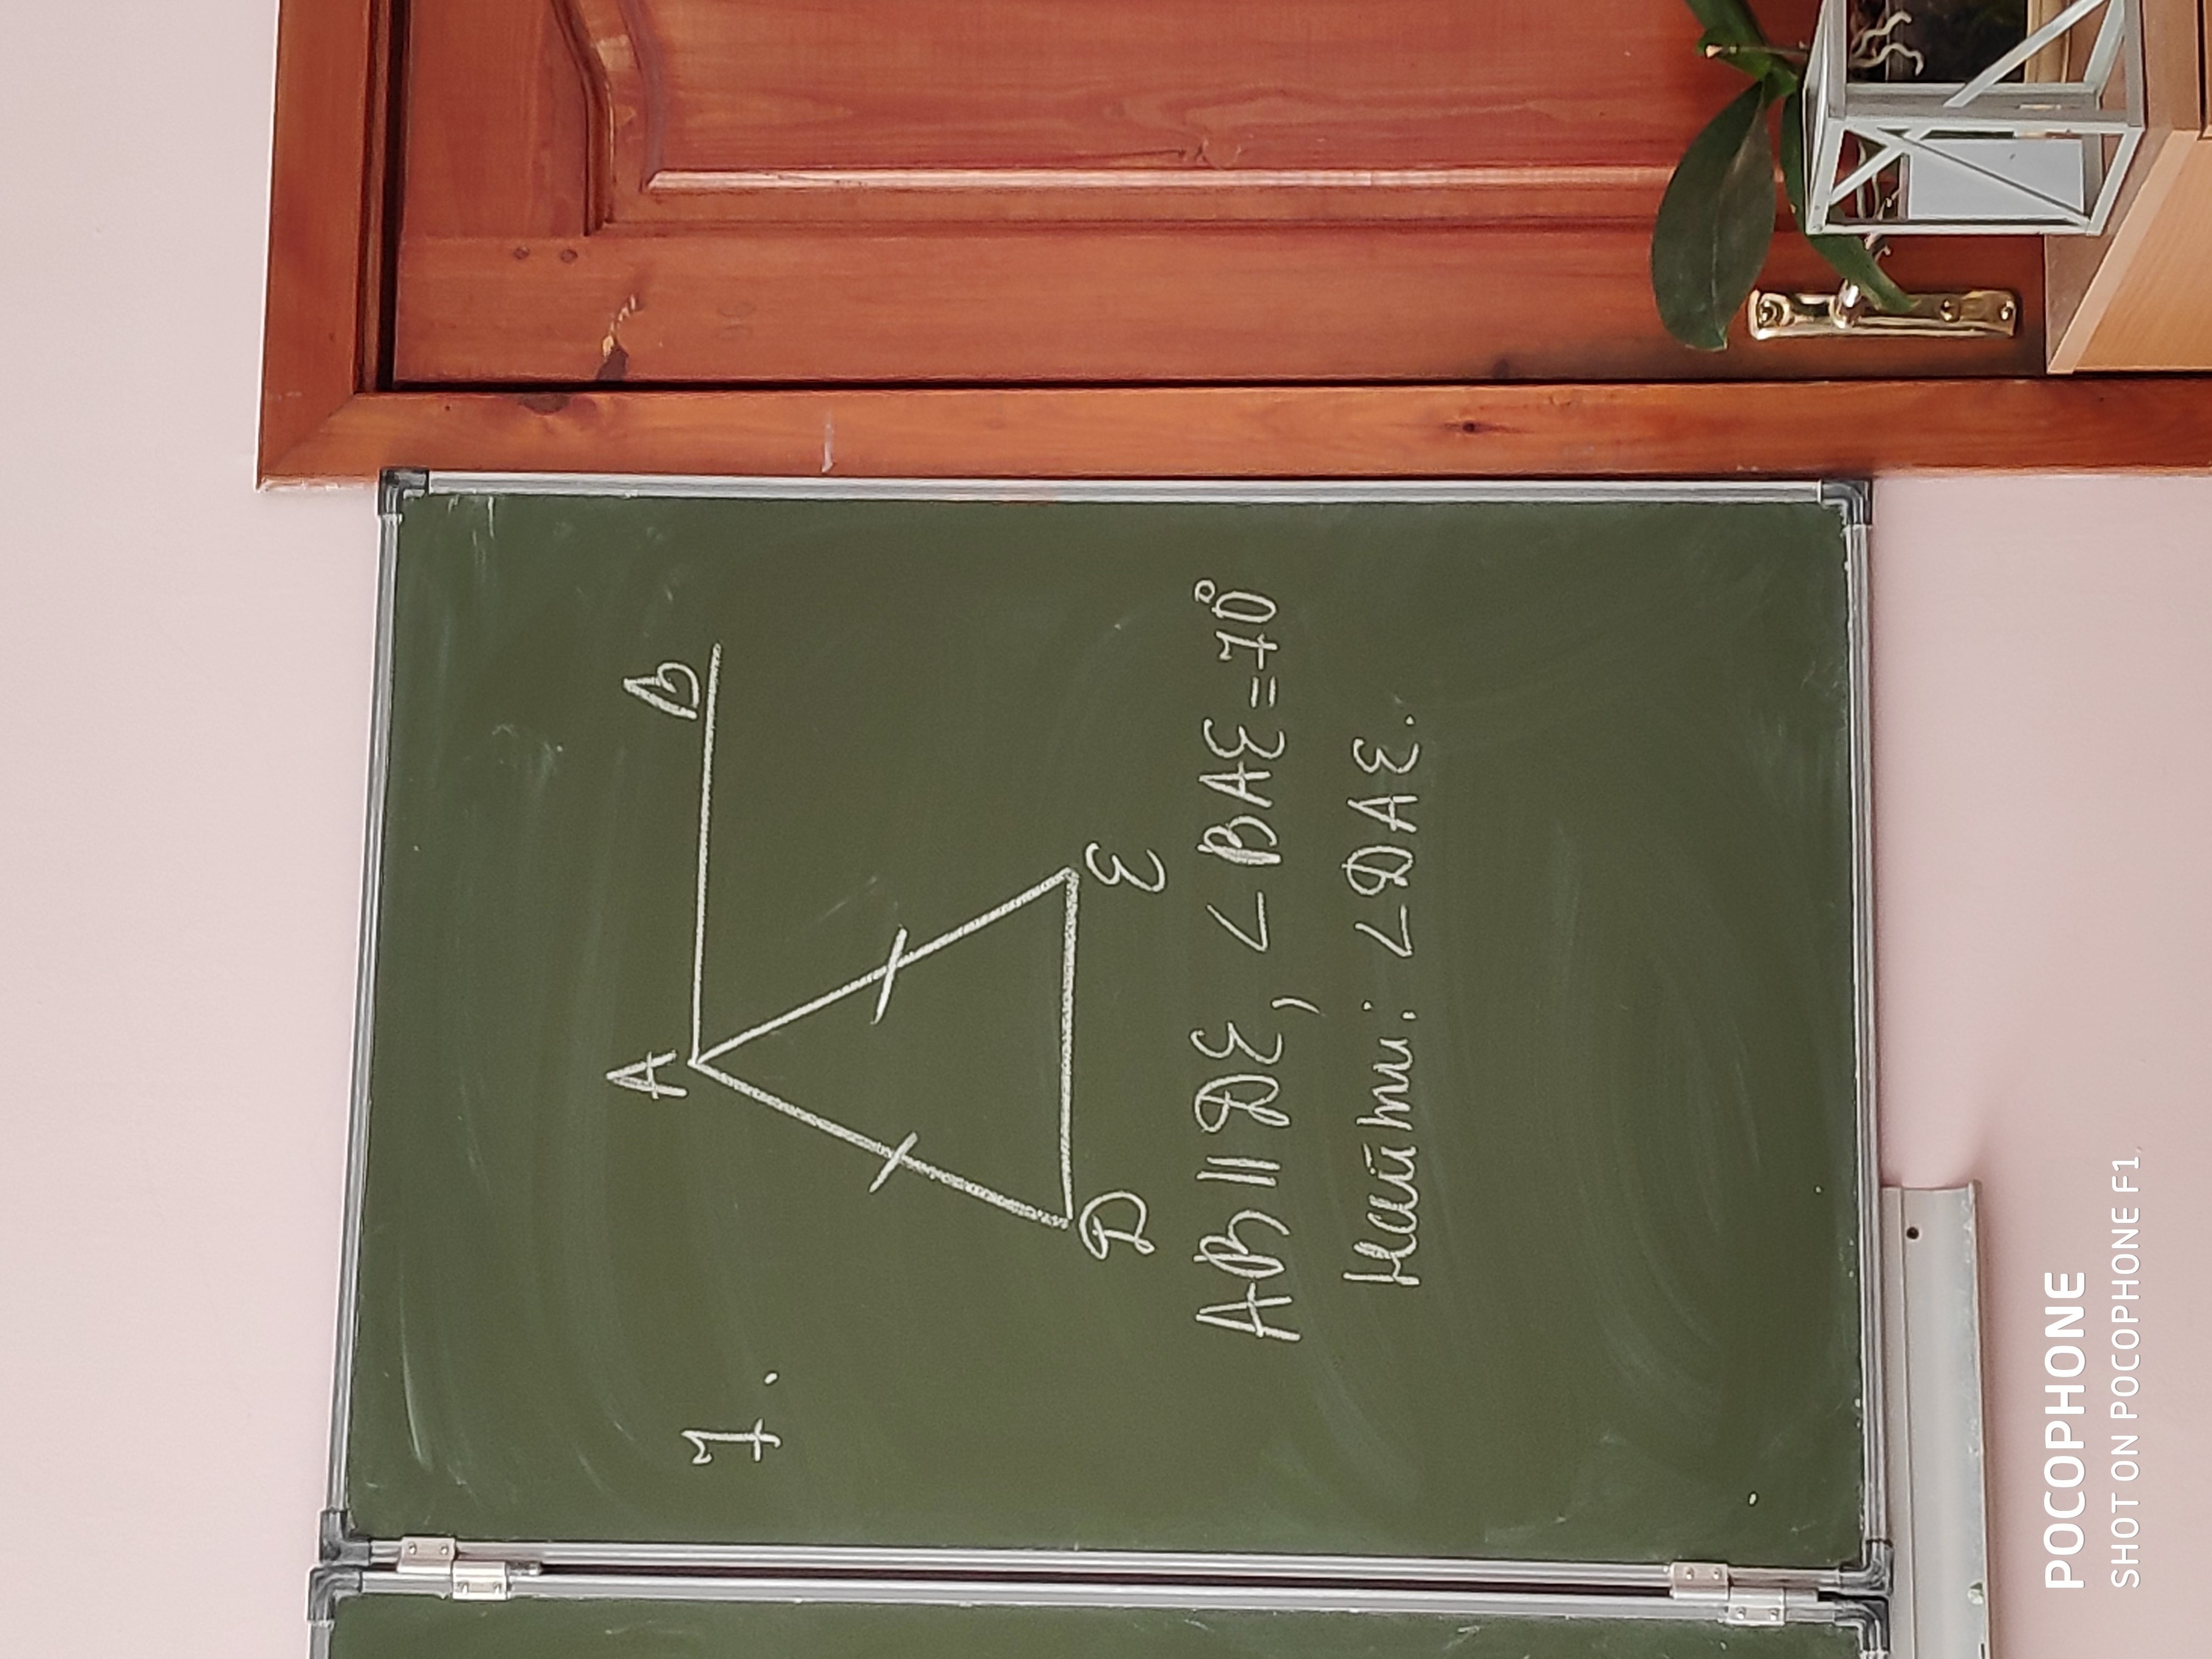 1.
A
B
D
E
AB || DE, ∠BAE=70°
Найти: ∠DAE.
POCOPHONE
SHOT ON POCOPHONE F1